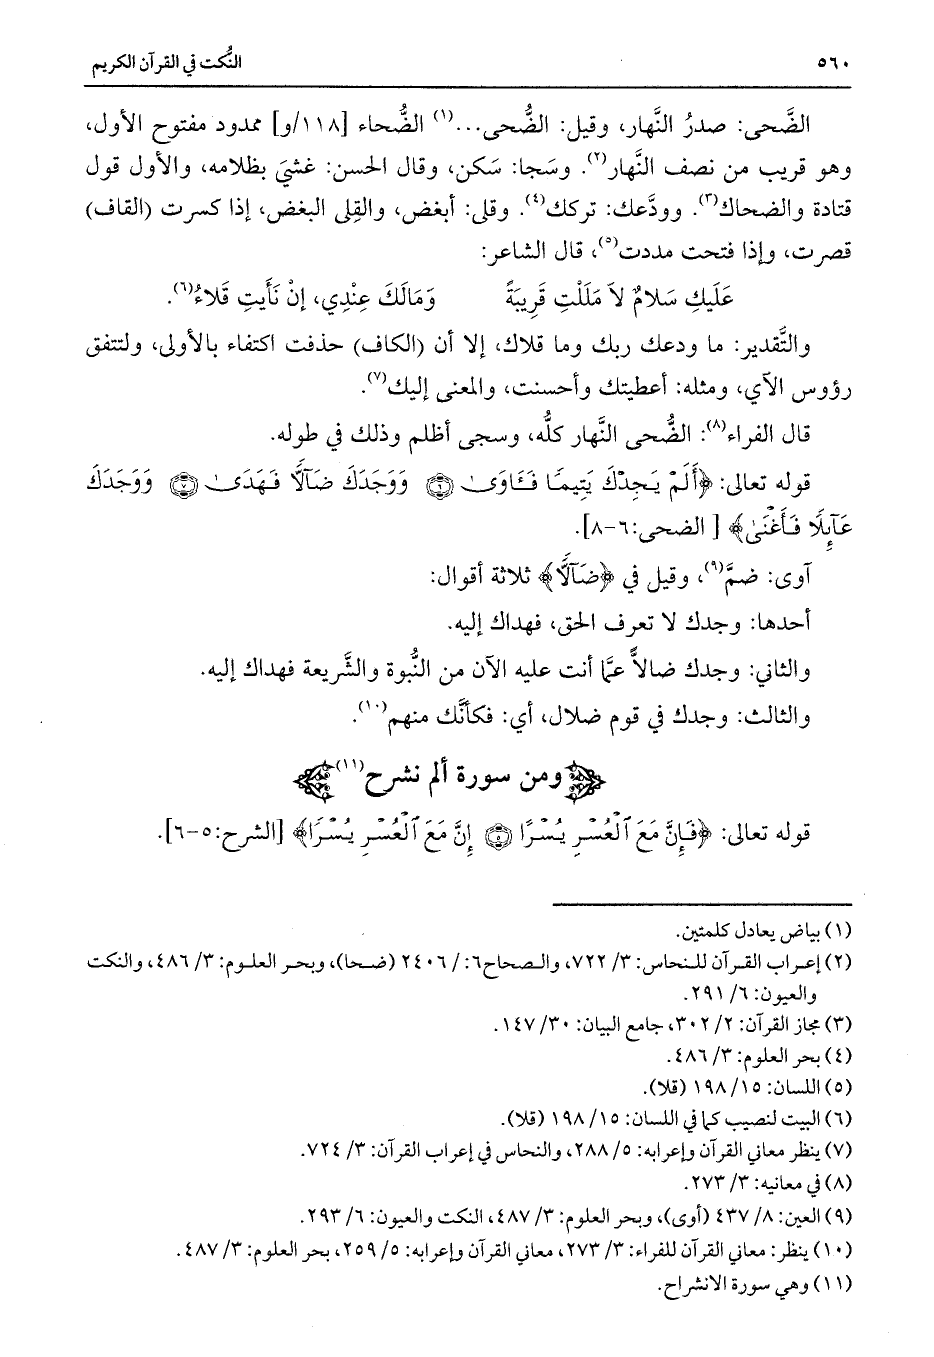 ٥٦٠ النُّكت في القرآن الكريم
الضَّحى: صدرُ النَّهار، وقيل: الضُّحى...(١) الضُّحاء [١١٨/و] ممدود مفتوح الأول،
وهو قريب من نصف النَّهار(٢). وسَجا: سَكن، وقال الحسن: غشيَ بظلامه، والأول قول
قتادة والضحاك(٣). وودَّعك: تركك(٤). وقلى: أبغض، والقِلى البغض، إذا كسرت (القاف)
قصرت، وإذا فتحت مددت(٥)، قال الشاعر:
عَلَيكِ سَلامٌ لاَ مَلَلْتِ قَرِيبَةً وَمَالَكَ عِنْدِي، إنْ نَأَيتِ قَلاءُ(٦).
والتَّقدير: ما ودعك ربك وما قلاك، إلا أن (الكاف) حذفت اكتفاء بالأولى، ولتتفق
رؤوس الآي، ومثله: أعطيتك وأحسنت، والمعنى إليك(٧).
قال الفراء(٨): الضُّحى النَّهار كلُّه، وسجى أظلم وذلك في طوله.
قوله تعالى: ﴿أَلَمْ يَجِدْكَ يَتِيمًا فَـَٔاوَىٰ ۝٦ وَوَجَدَكَ ضَآلًّا فَهَدَىٰ ۝٧ وَوَجَدَكَ
عَآئِلًا فَأَغْنَىٰ﴾ [ الضحى:٦-٨].
آوى: ضمَّ(٩)، وقيل في ﴿ضَآلًّا﴾ ثلاثة أقوال:
أحدها: وجدك لا تعرف الحق، فهداك إليه.
والثاني: وجدك ضالاً عمَّا أنت عليه الآن من النُّبوة والشَّريعة فهداك إليه.
والثالث: وجدك في قوم ضلال، أي: فكأنَّك منهم(١٠).
ومن سورة ألم نشرح(١١)
قوله تعالى: ﴿فَإِنَّ مَعَ ٱلْعُسْرِ يُسْرًا ۝٥ إِنَّ مَعَ ٱلْعُسْرِ يُسْرًا﴾ [الشرح:٥-٦].
(١) بياض يعادل كلمتين.
(٢) إعراب القرآن للنحاس: ٣/ ٧٢٢، والصحاح٦: / ٢٤٠٦ (ضحا)، وبحر العلوم: ٣/ ٤٨٦، والنكت
والعيون: ٦/ ٢٩١.
(٣) مجاز القرآن: ٢/ ٣٠٢، جامع البيان: ٣٠/ ١٤٧.
(٤) بحر العلوم: ٣/ ٤٨٦.
(٥) اللسان: ١٥/ ١٩٨ (قلا).
(٦) البيت لنصيب كما في اللسان: ١٥/ ١٩٨ (قلا).
(٧) ينظر معاني القرآن وإعرابه: ٥/ ٢٨٨، والنحاس في إعراب القرآن: ٣/ ٧٢٤.
(٨) في معانيه: ٣/ ٢٧٣.
(٩) العين: ٨/ ٤٣٧ (أوى)، وبحر العلوم: ٣/ ٤٨٧، النكت والعيون: ٦/ ٢٩٣.
(١٠) ينظر: معاني القرآن للفراء: ٣/ ٢٧٣، معاني القرآن وإعرابه: ٥/ ٢٥٩، بحر العلوم: ٣/ ٤٨٧.
(١١) وهي سورة الانشراح.